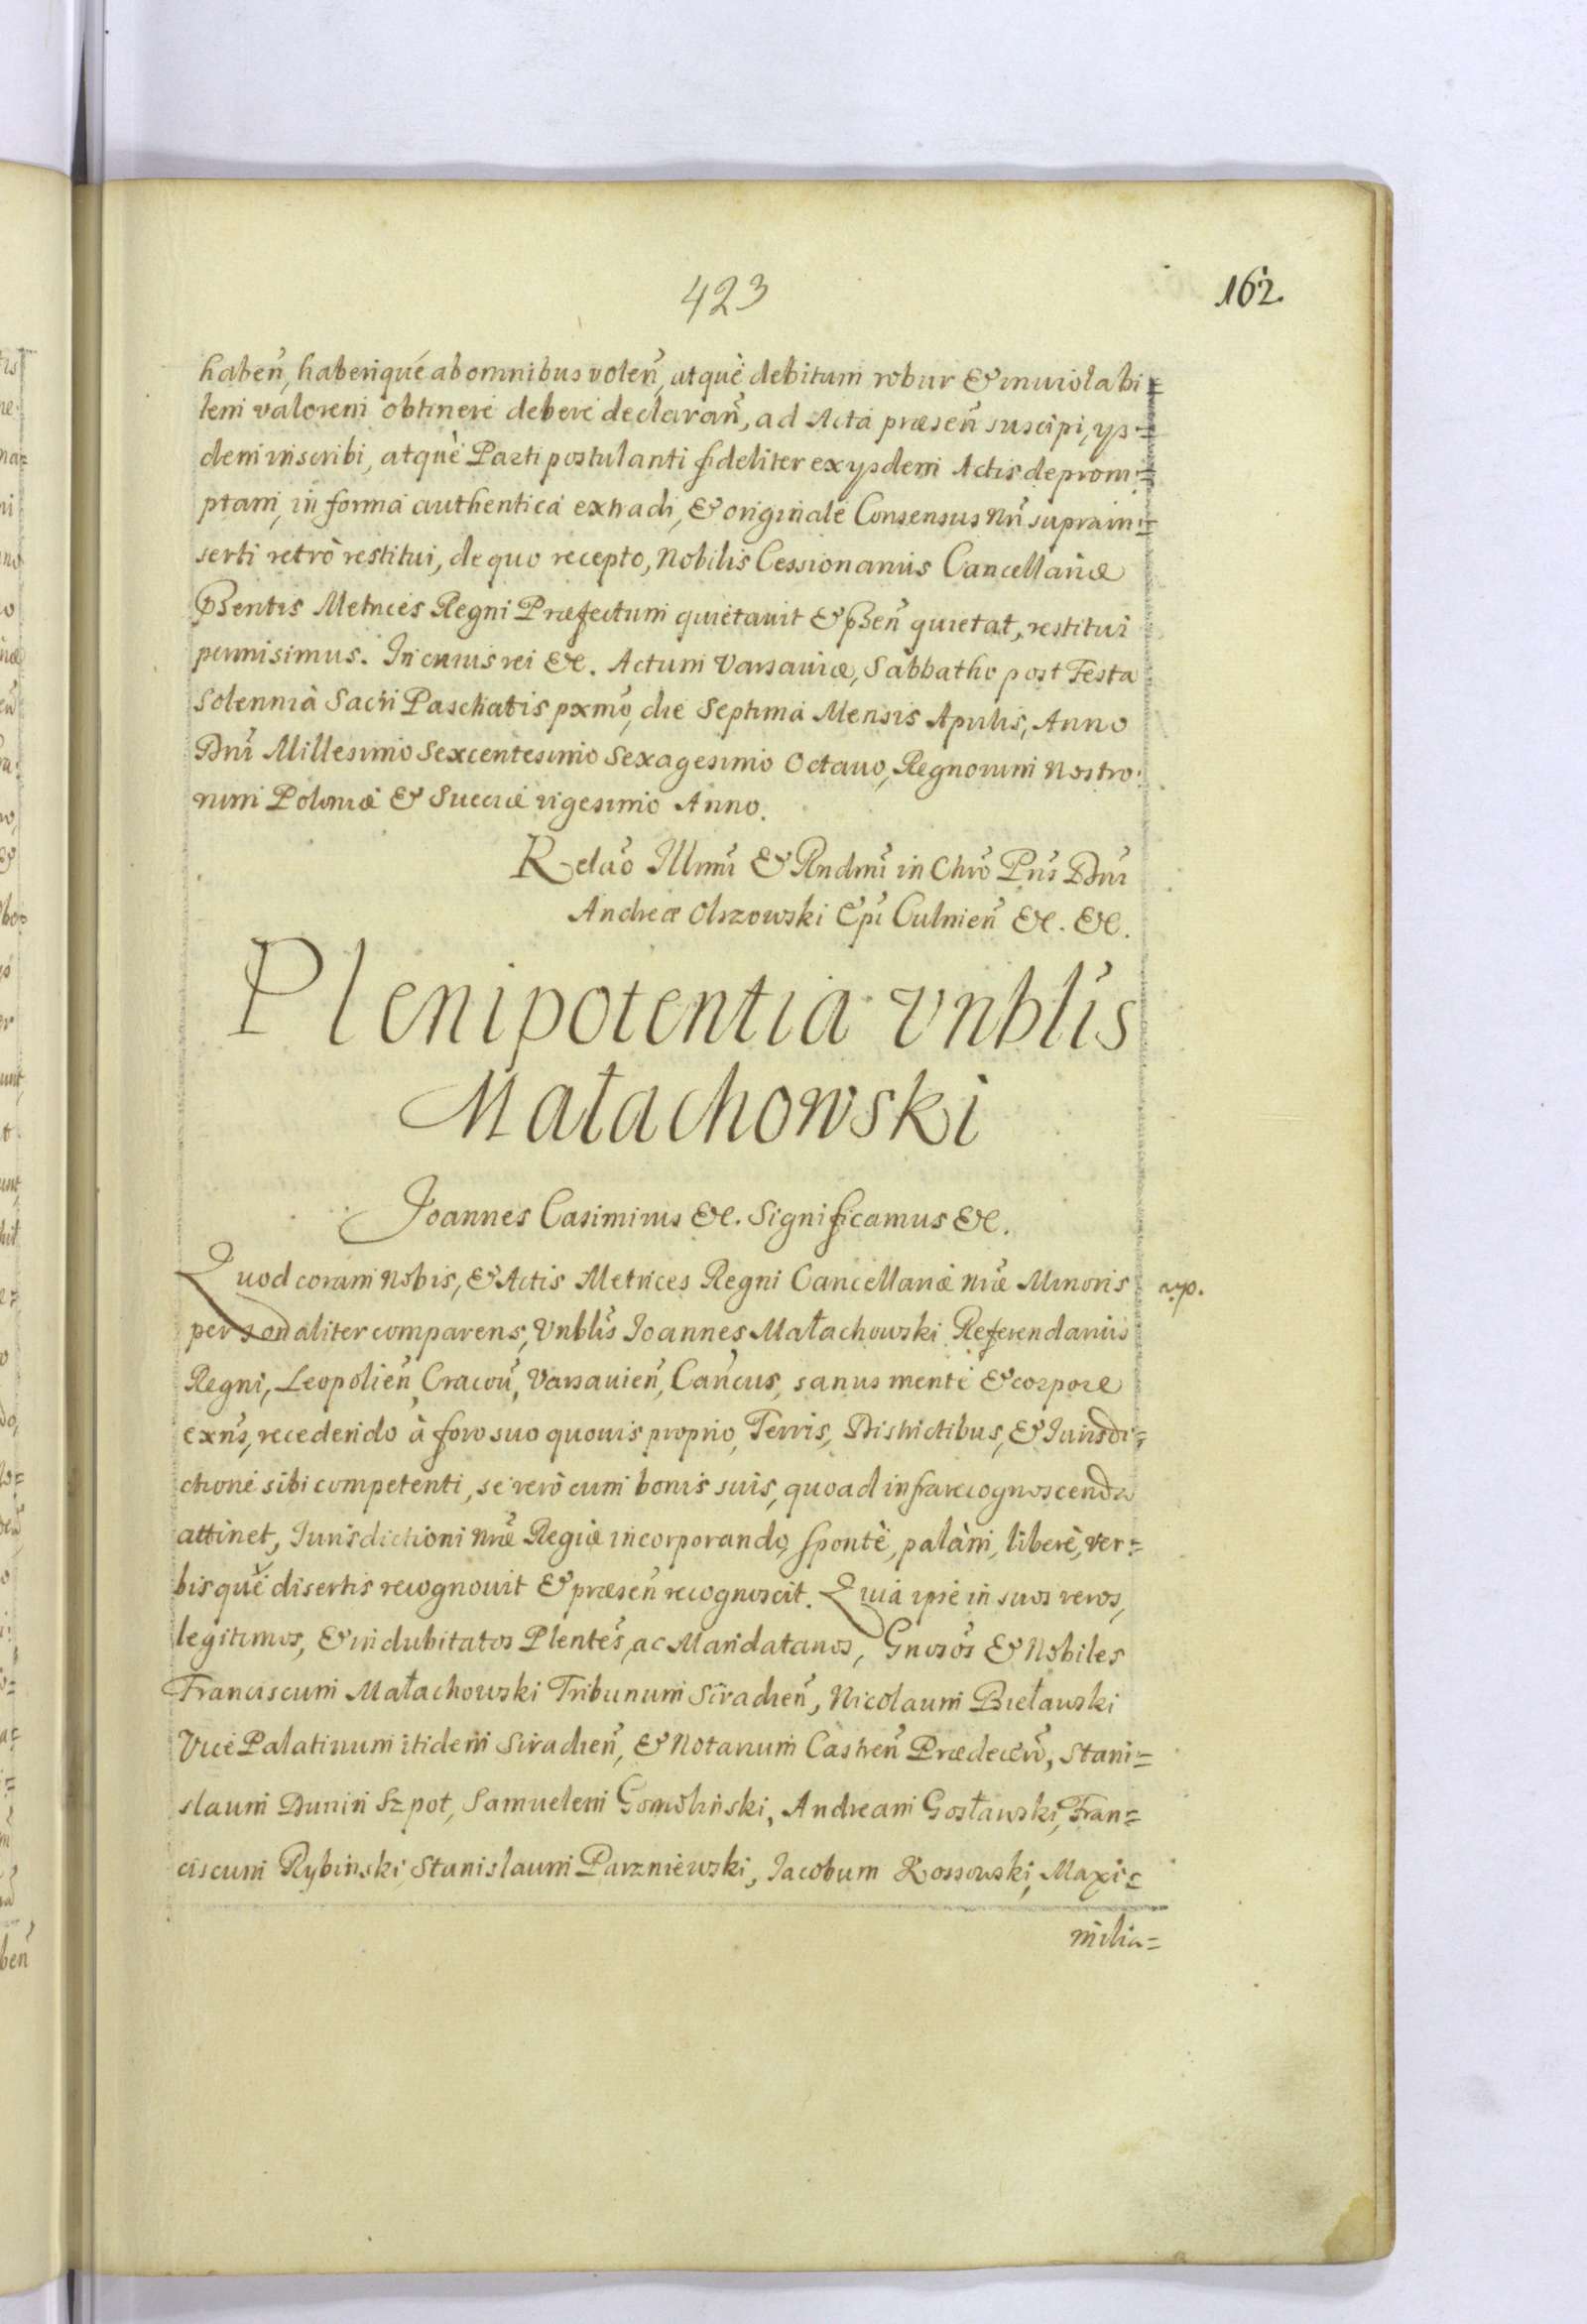 423
162.
haben̄, haberiqué ab omnibus volen̄, atquè debitum robur & inuiolabi=
lem valorem obtinere debere declaran̄, ad Acta præsen̄ suscipi, ys=
dem inscribi, atquè Parti postulanti fideliter ex ysdem Actis deprom=
ptam, in forma authentica extradi, & originale Consensus Nr̄i suprain=
serti retrò restitui, de quo recepto, Nobilis Cessionarius Cancellariæ
p̄sentis Metrices Regni Præfectum quietauit & p̄sen̄ quietat, restitui
permisimus. In cuius rei &c. Actum Varsauiæ, Sabbatho post Festa
Solennia Sacri Paschatis pxmō, die Septima Mensis Aprilis, Anno
Dn̄i Millesimo Sexcentesimo Sexagesimo Octauo, Regnorum Nostro=
rum Poloniæ & Sueciæ vigesimo Anno.
Relāo Illmī & Rndmī in Chrō Pr̄is Dn̄i
Andreæ Olszowski Ep̄i Culmien̄ &c. &c.
Plenipotentia Vnblīs
Małachowski
Joannes Casimirus &c. Significamus &c.
Quod coram Nobis, & Actis Metrices Regni Cancellariæ Nr̄æ Minoris
personaliter comparens, Vnblīs Joannes Małachowski Referendarius
Regni, Leopolien̄, Cracou̅, Varsauien̄, Can̄cus, sanus mente & corpore
exn̄s, recedendo à foro suo quouis proprio, Terris, Districtibus, & Jurisdi=
ctione sibi competenti, se verò cum bonis suis, quoad infrarecognoscenda
attinet, Jurisdictioni Nr̄æ Regiæ incorporando, spontè, palàm, liberè, ver=
bisquè disertis recognouit & præsen̄ recognoscit. Quia ipse in suos veros,
legitimos, & indubitatos Plentēs, ac Mandatarios, Gnosōs & Nobiles
Franciscum Małachowski Tribunum Siradien̄, Nicolaum Bieławski
Vice Palatinum itidem Siradien̄, & Notarium Castren̄ Prædecen̄, Stani=
slaum Dunin Szpot, Samuelem Gomoliński, Andream Gosławski, Fran=
ciscum Rybiński, Stanislaum Parzniewski, Jacobum Kossowski, Maxi=
milia=